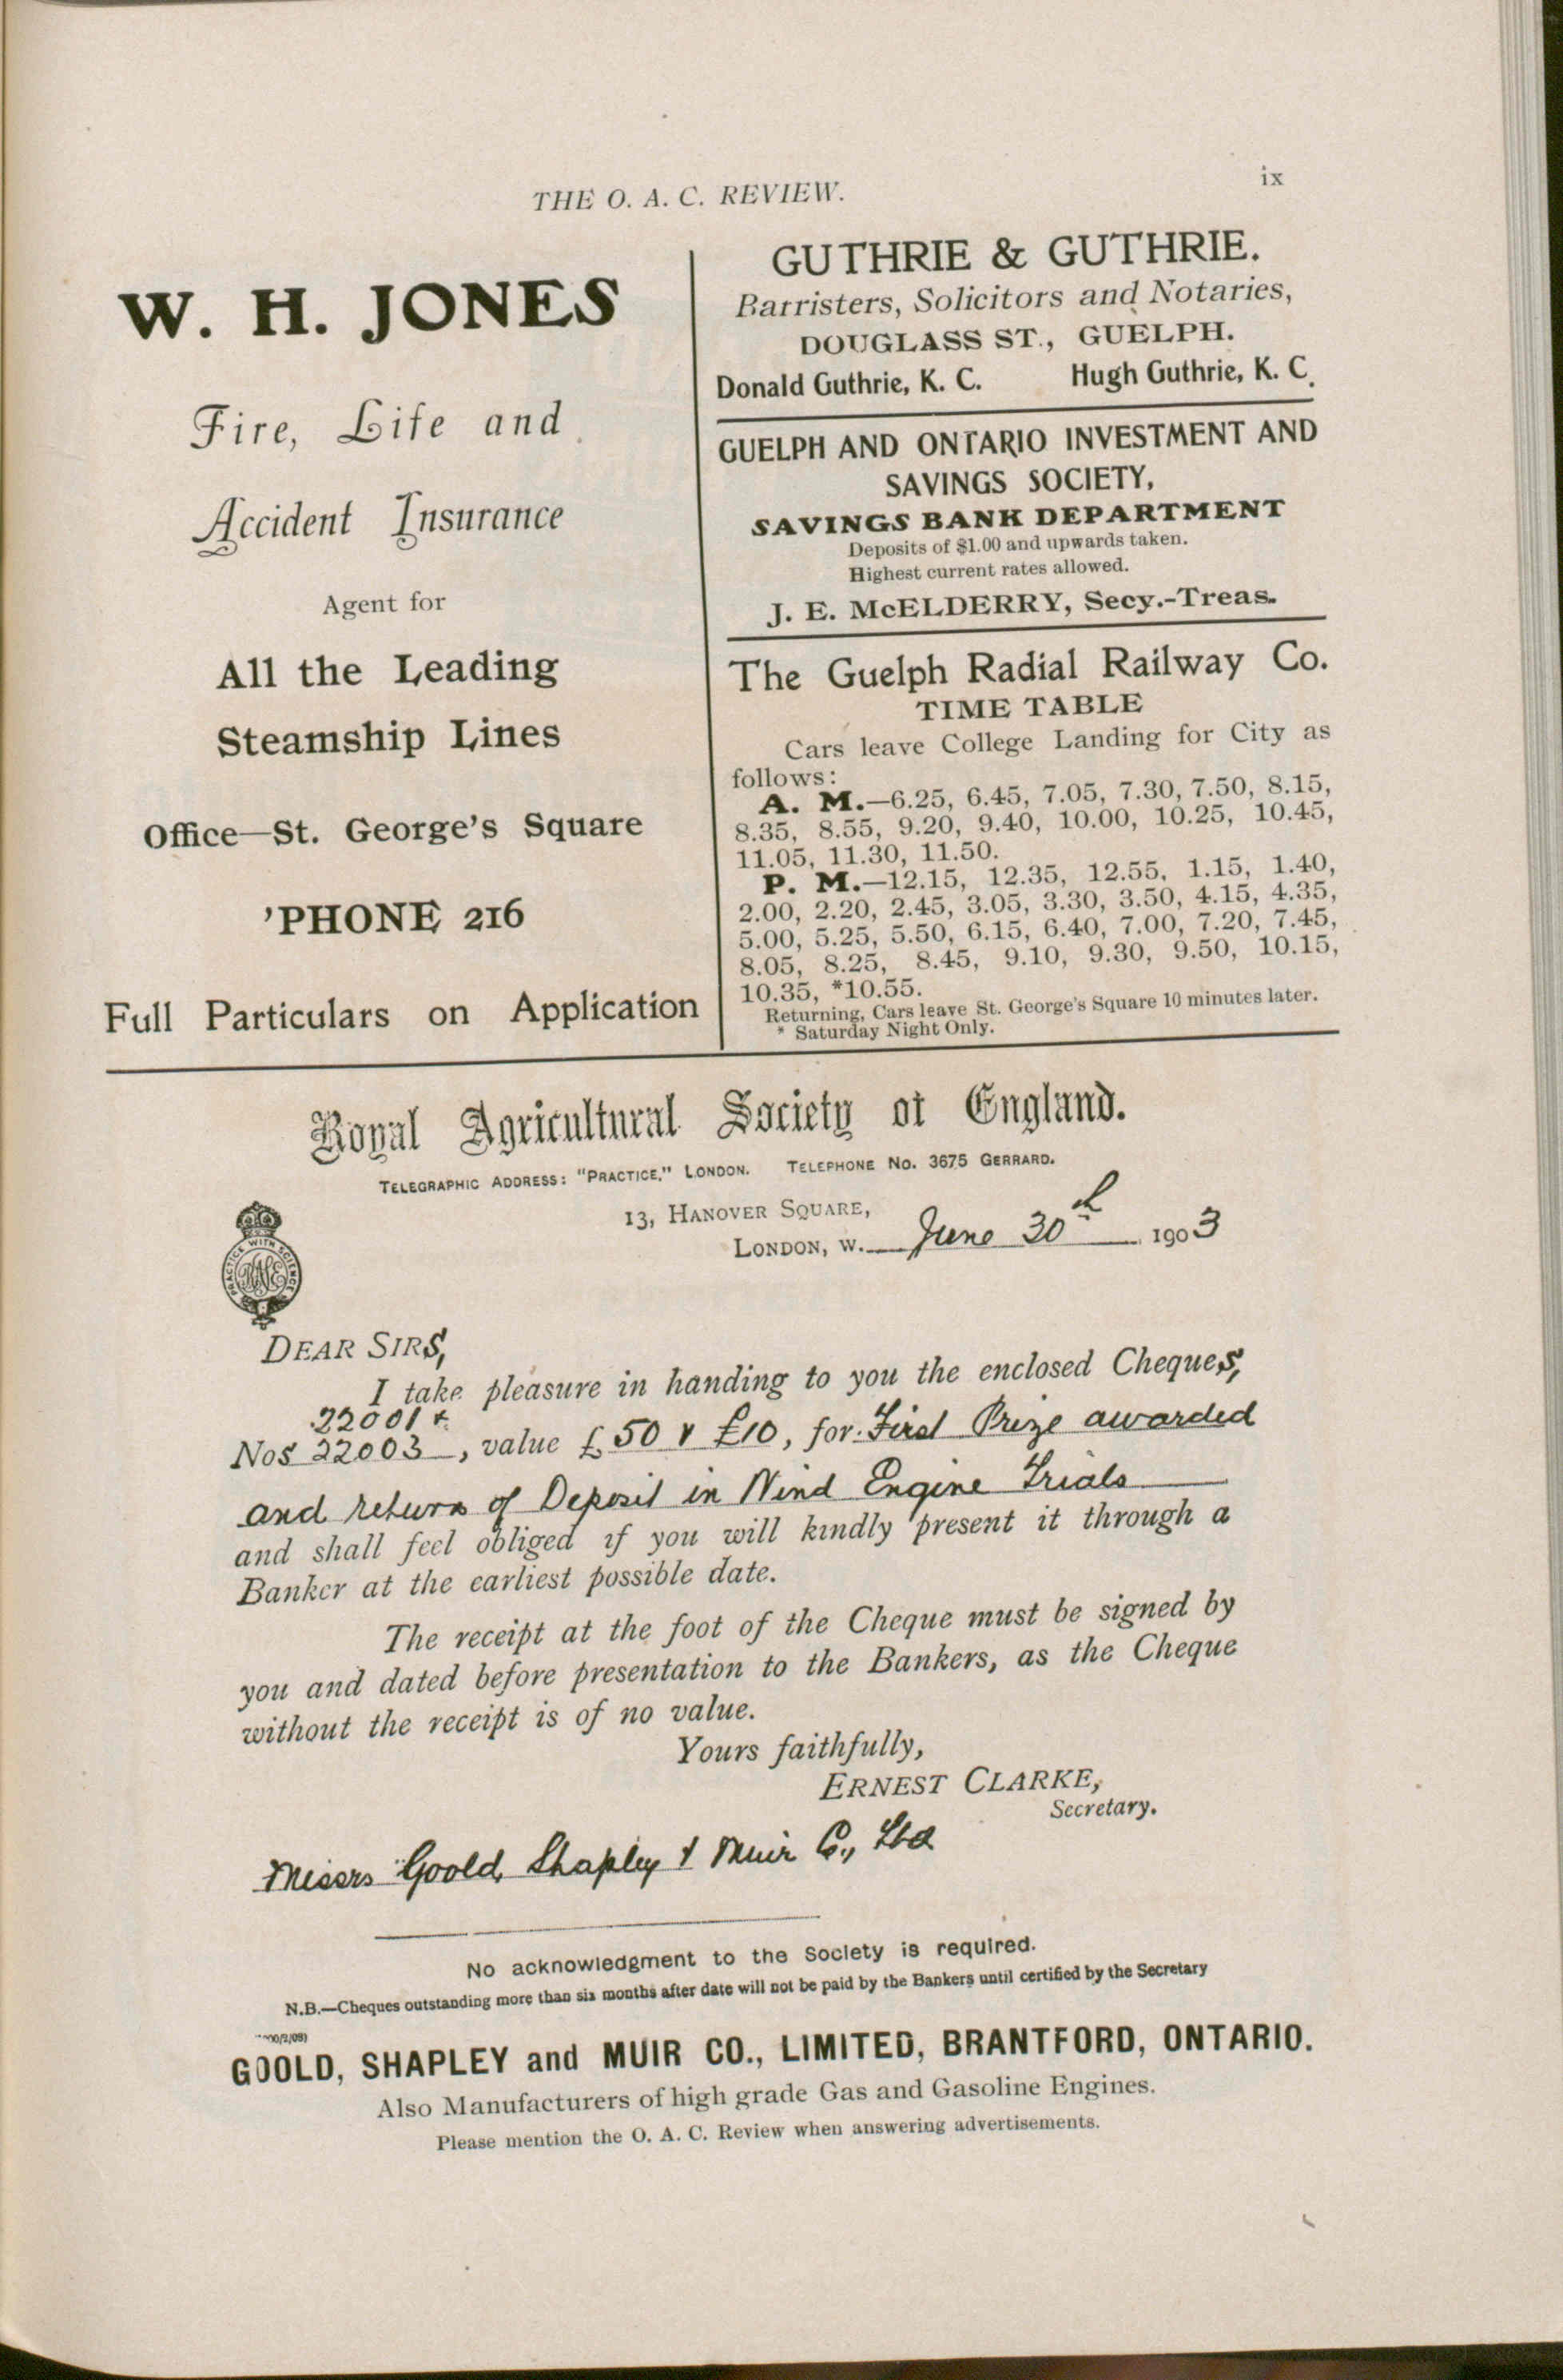 THE O. A. C. REVIEW.
ix
W. H. JONES
Fire, Life and
Accident Insurance
Agent for
All the Leading
Steamship Lines
Office—St. George's Square
'PHONE 216
Full Particulars on Application
GUTHRIE & GUTHRIE.
Barristers, Solicitors and Notaries,
DOUGLASS ST., GUELPH.
Donald Guthrie, K. C. Hugh Guthrie, K. C.
GUELPH AND ONTARIO INVESTMENT AND
SAVINGS SOCIETY,
SAVINGS BANK DEPARTMENT
Deposits of $1.00 and upwards taken.
Highest current rates allowed.
J. E. McELDERRY, Secy.-Treas.
The Guelph Radial Railway Co.
TIME TABLE
Cars leave College Landing for City as
follows:
A. M.—6.25, 6.45, 7.05, 7.30, 7.50, 8.15,
8.35, 8.55, 9.20, 9.40, 10.00, 10.25, 10.45,
11.05, 11.30, 11.50.
P. M.—12.15, 12.35, 12.55, 1.15, 1.40,
2.00, 2.20, 2.45, 3.05, 3.30, 3.50, 4.15, 4.35,
5.00, 5.25, 5.50, 6.15, 6.40, 7.00, 7.20, 7.45,
8.05, 8.25, 8.45, 9.10, 9.30, 9.50, 10.15,
10.35, *10.55.
Returning, Cars leave St. George's Square 10 minutes later.
* Saturday Night Only.
Royal Agricultural Society of England.
TELEGRAPHIC ADDRESS: "PRACTICE," LONDON. TELEPHONE No. 3675 GERRARD.
13, HANOVER SQUARE,
LONDON, W. June 30th 1903
PRACTICE WITH SCIENCE
DEAR SIRS,
I take pleasure in handing to you the enclosed Cheques,
22001 &
Nos 22003, value £50 & £10, for First Prize awarded
and return of Deposit in Wind Engine Trials
and shall feel obliged if you will kindly present it through a
Banker at the earliest possible date.
The receipt at the foot of the Cheque must be signed by
you and dated before presentation to the Bankers, as the Cheque
without the receipt is of no value.
Yours faithfully,
ERNEST CLARKE,
Secretary.
Messrs Goold, Shapley & Muir Co., Ltd
No acknowledgment to the Society is required.
N.B.—Cheques outstanding more than six months after date will not be paid by the Bankers until certified by the Secretary
GOOLD, SHAPLEY and MUIR CO., LIMITED, BRANTFORD, ONTARIO.
Also Manufacturers of high grade Gas and Gasoline Engines.
Please mention the O. A. C. Review when answering advertisements.